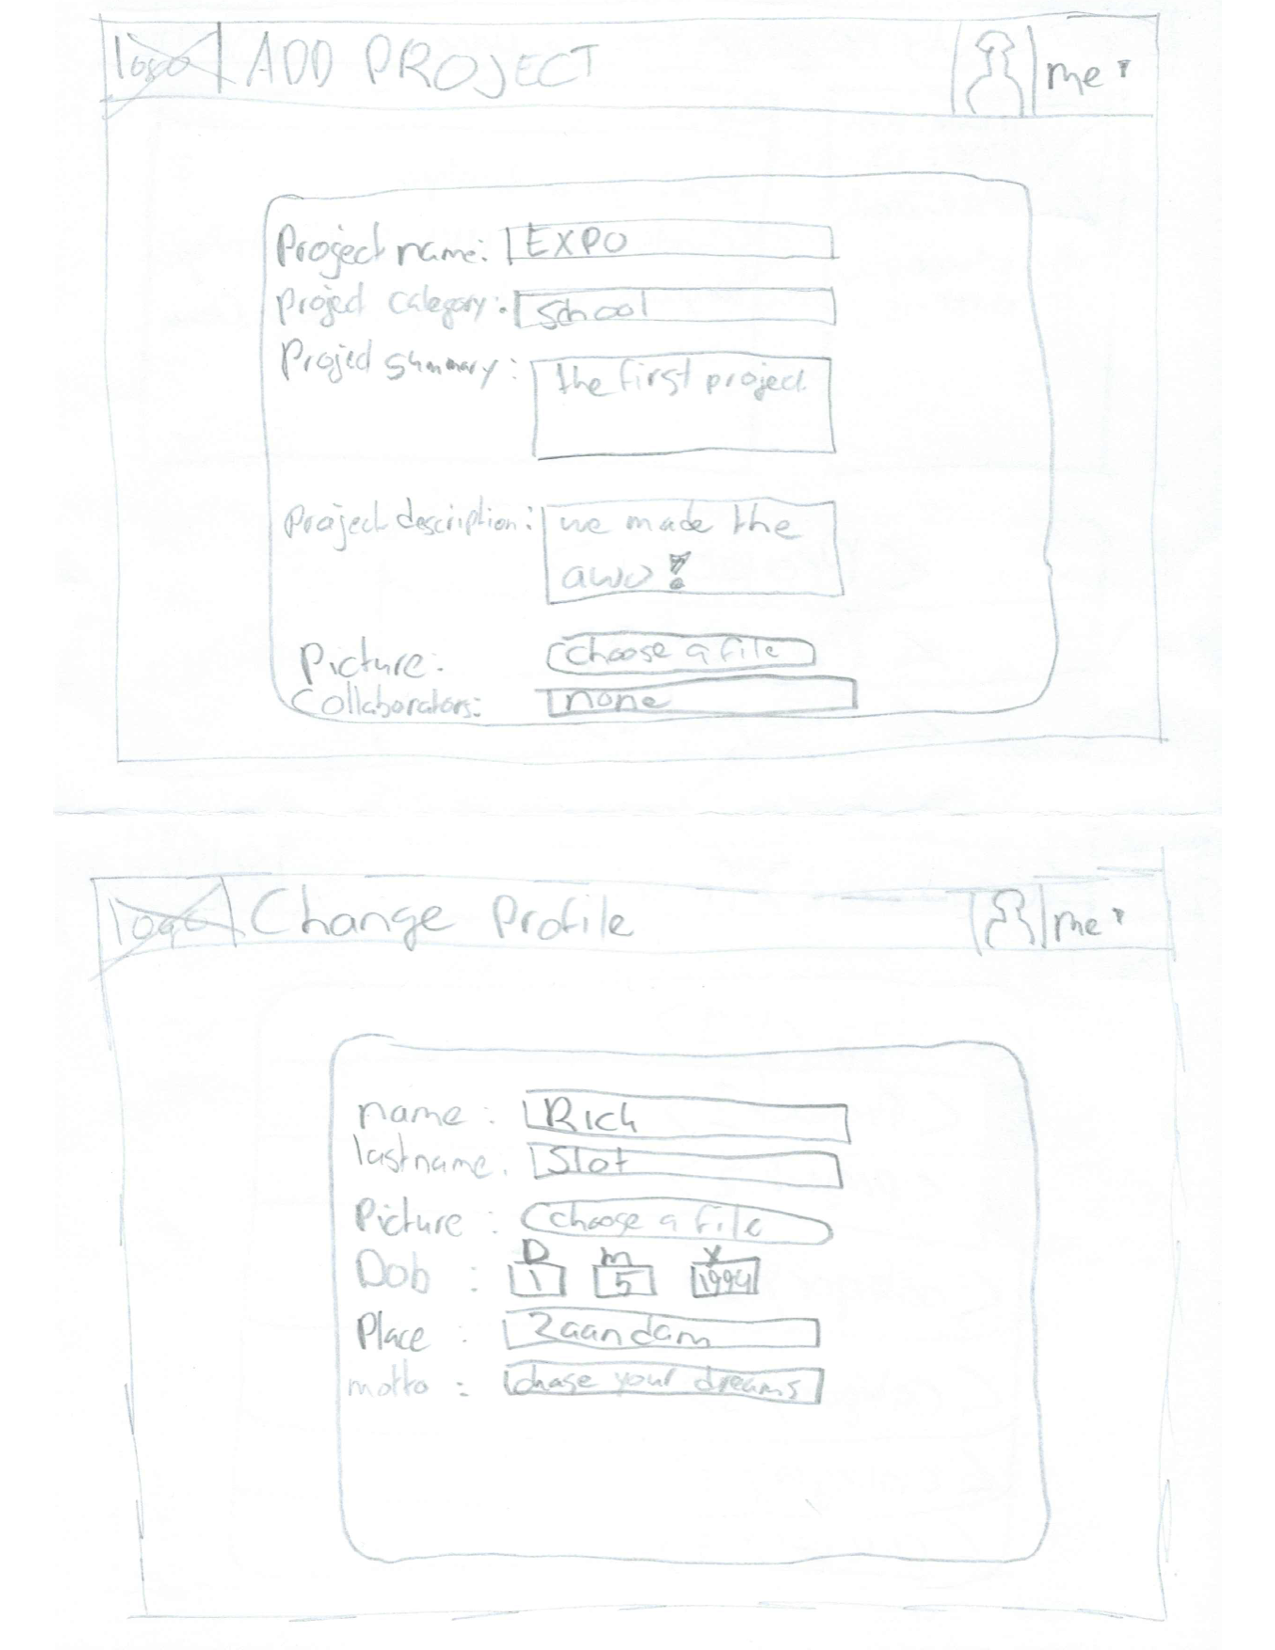 logo ADD PROJECT me
Project name: EXPO
Project category: School
Project summary: the first project
Project description: we made the
awo!
Picture: choose a file
Collaborators: none
logo Change Profile me
name: Rich
lastname: Slot
Picture: choose a file
D M Y
Dob: 1 5 1994
Place: Zaandam
motto: chase your dreams